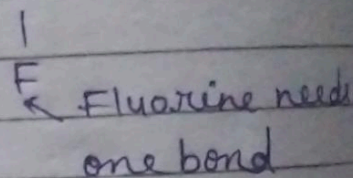 F
Fluorine needs
one bond